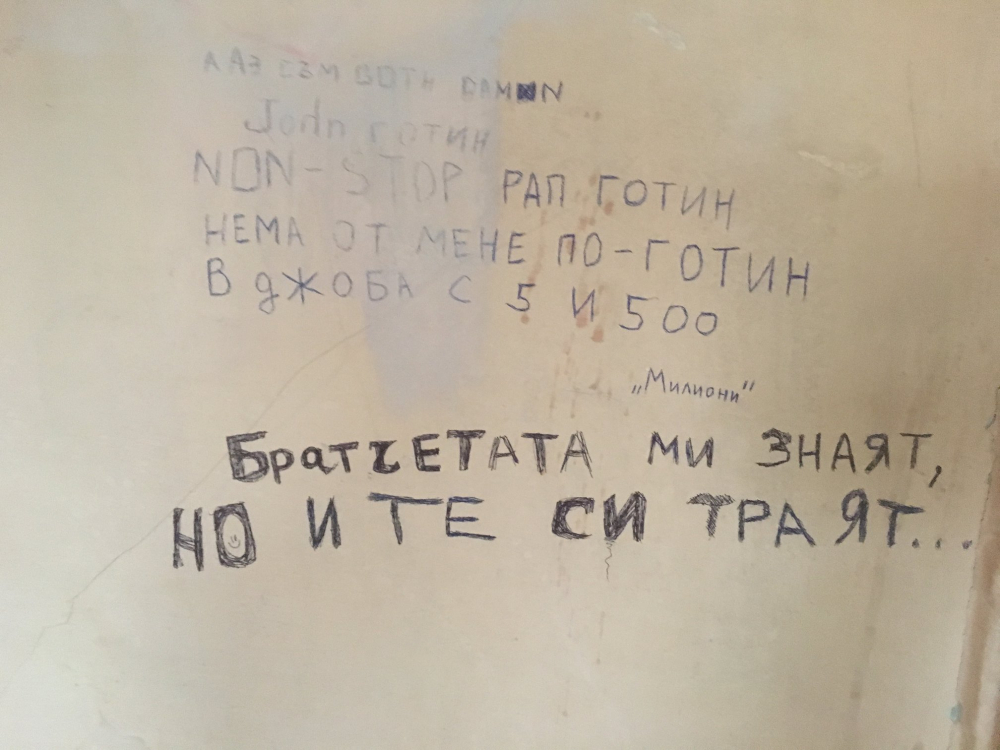 А АЗ СЪМ
John ГОТИН
NON-STOP РАП ГОТИН
НЕМА ОТ МЕНЕ ПО-ГОТИН
В дЖОБА С 5 И 500
„Милиони“
БратчЕТАТА МИ ЗНАЯТ,
НО И ТЕ СИ ТРАЯТ...